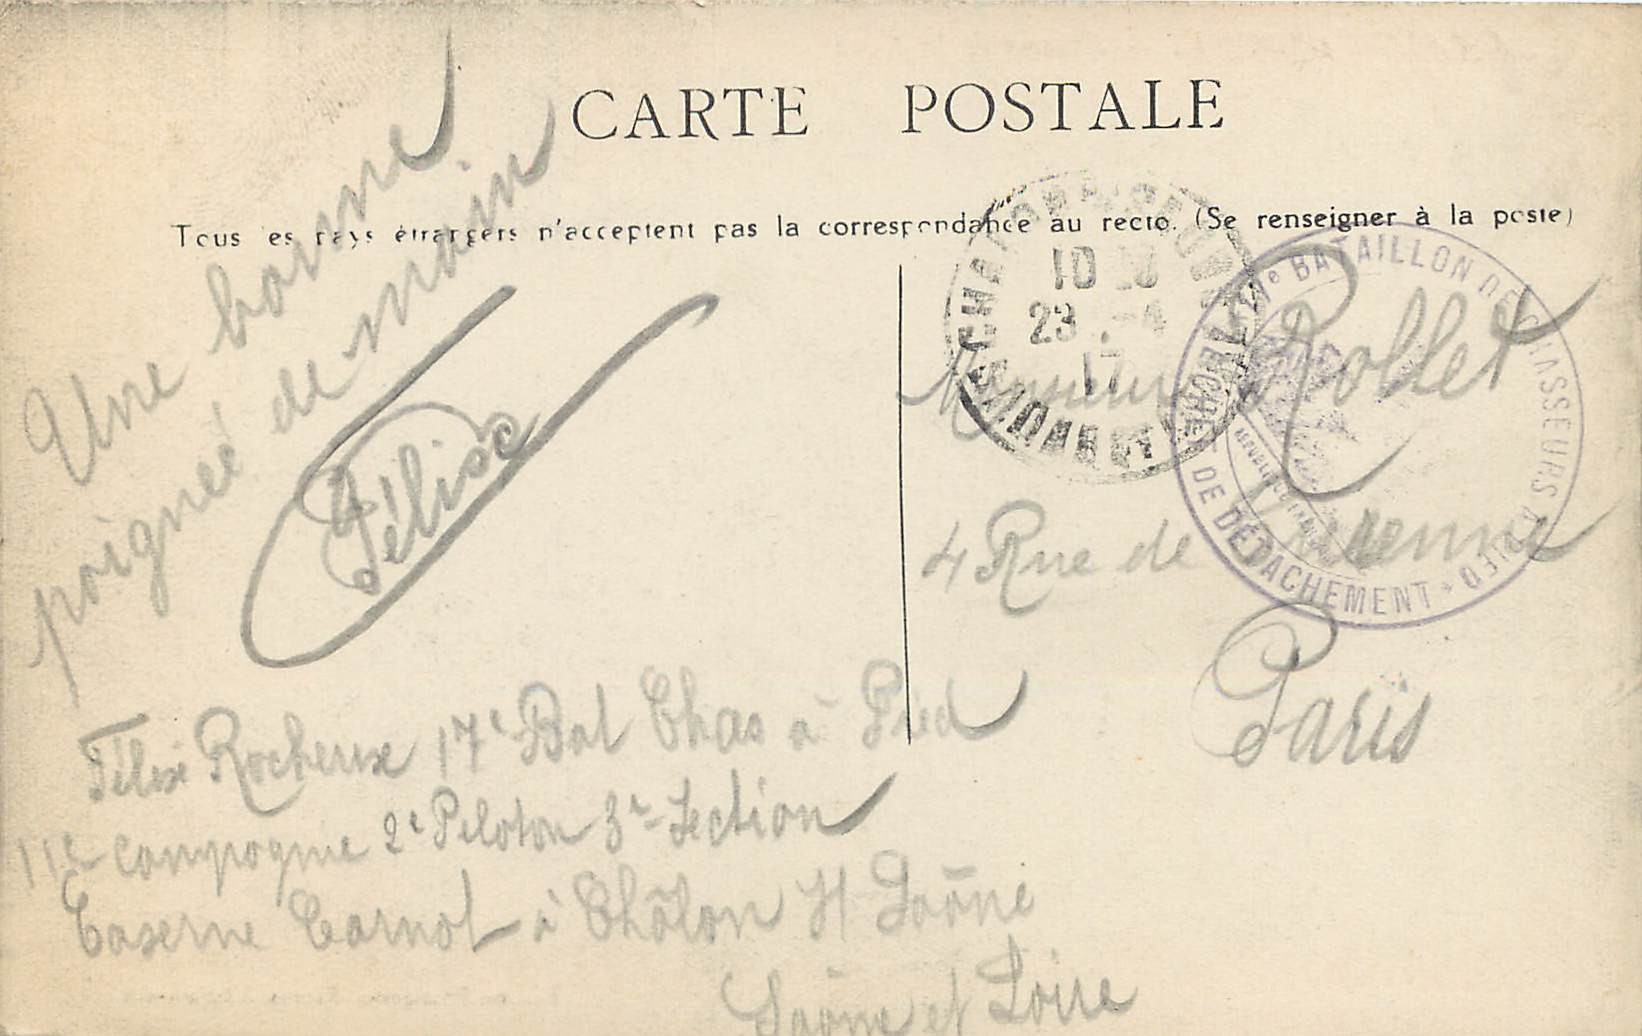 CARTE POSTALE
Tous les pays étrangers n'acceptent pas la correspondance au recto. (Se renseigner à la poste)
Une bonne
poigneé de main
Félix
Félix Rocheux 17e Bat Chas à Pied
11e compagnie 2e Peloton 3e Section
Caserne Carnot à Châlon s/ Saône
Saône et Loire
10
23 -4
17
BATAILLON DE CHASSEURS A PIED
DE DÉTACHEMENT
RÉPUBLIQUE FRANÇAISE
Monsieur Rollet
4 Rue de
Paris